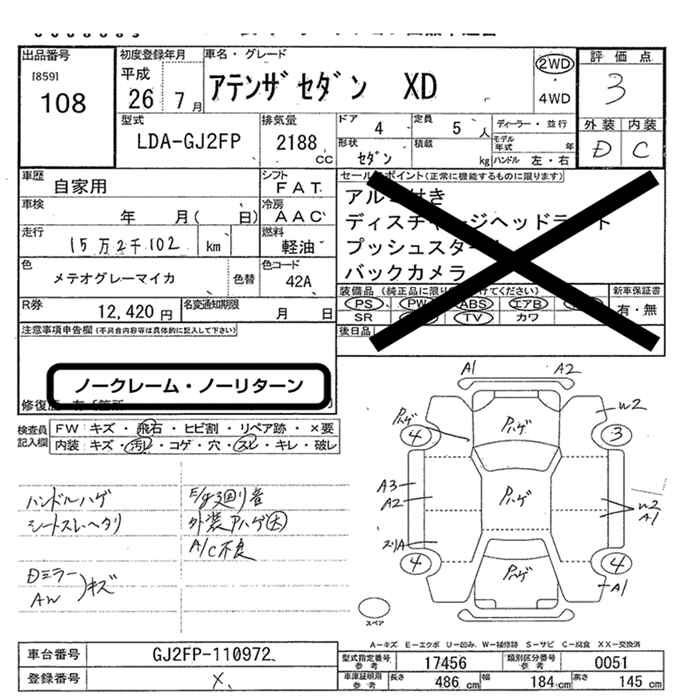 出品番号
[859]
108
初度登録年月
平成
26 7月
車名・グレード
アテンザセダン XD
2WD
4WD
評価点
3
外装 内装
D C
型式
LDA-GJ2FP
排気量
2188 CC
ドア 4
定員 5 人
形状 セダン
積載 kg
ディーラー・並行
モデル年式 年
ハンドル 左・右
車歴
自家用
シフト
FAT
車検
年 月( 日)
冷房
AAC
走行
15万2千102 km
燃料
軽油
色
メテオグレーマイカ
色替
色コード
42A
R券
12,420 円
名変通知期限
月 日
セールスポイント(正常に機能するものに限ります)
アルミ付き
ディスチャージヘッドライト
プッシュスタート
バックカメラ
装備品 (純正品に限り○をつけてください)
PS PW ABS エアB
SR TV カワ
新車保証書
有・無
後日品
注意事項申告欄(不具合内容等は具体的に記入して下さい)
ノークレーム・ノーリターン
検査員記入欄
FW:キズ・飛石・ヒビ割・リペア跡・×要
内装:キズ・汚レ・コゲ・穴・スレ・キレ・破レ
ハンドルハゲ
シートスレヘタリ
Dミラー
AW
キズ
E/g廻り音
外装Pハゲ大
A/C不良
A1 A2
Pハゲ
4
Pハゲ
W2
3
A3
A2
Pハゲ
W2
A1
スリA
4
Pハゲ
4
A1
スペア
A-キズ E-エクボ U-凹み W-補修跡 S-サビ C-腐食 XX-交換済
車台番号
GJ2FP-110972
登録番号
×
型式指定番号 参考
17456
類別区分番号 参考
0051
車庫証明用 参考
長さ 486 cm
幅 184 cm
高さ 145 cm